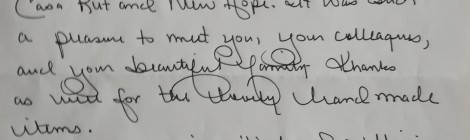 Casa But and New Hope. It was such
a pleasure to meet you, your colleagues,
and your beautiful family Thanks
as well for the lovely handmade
items.